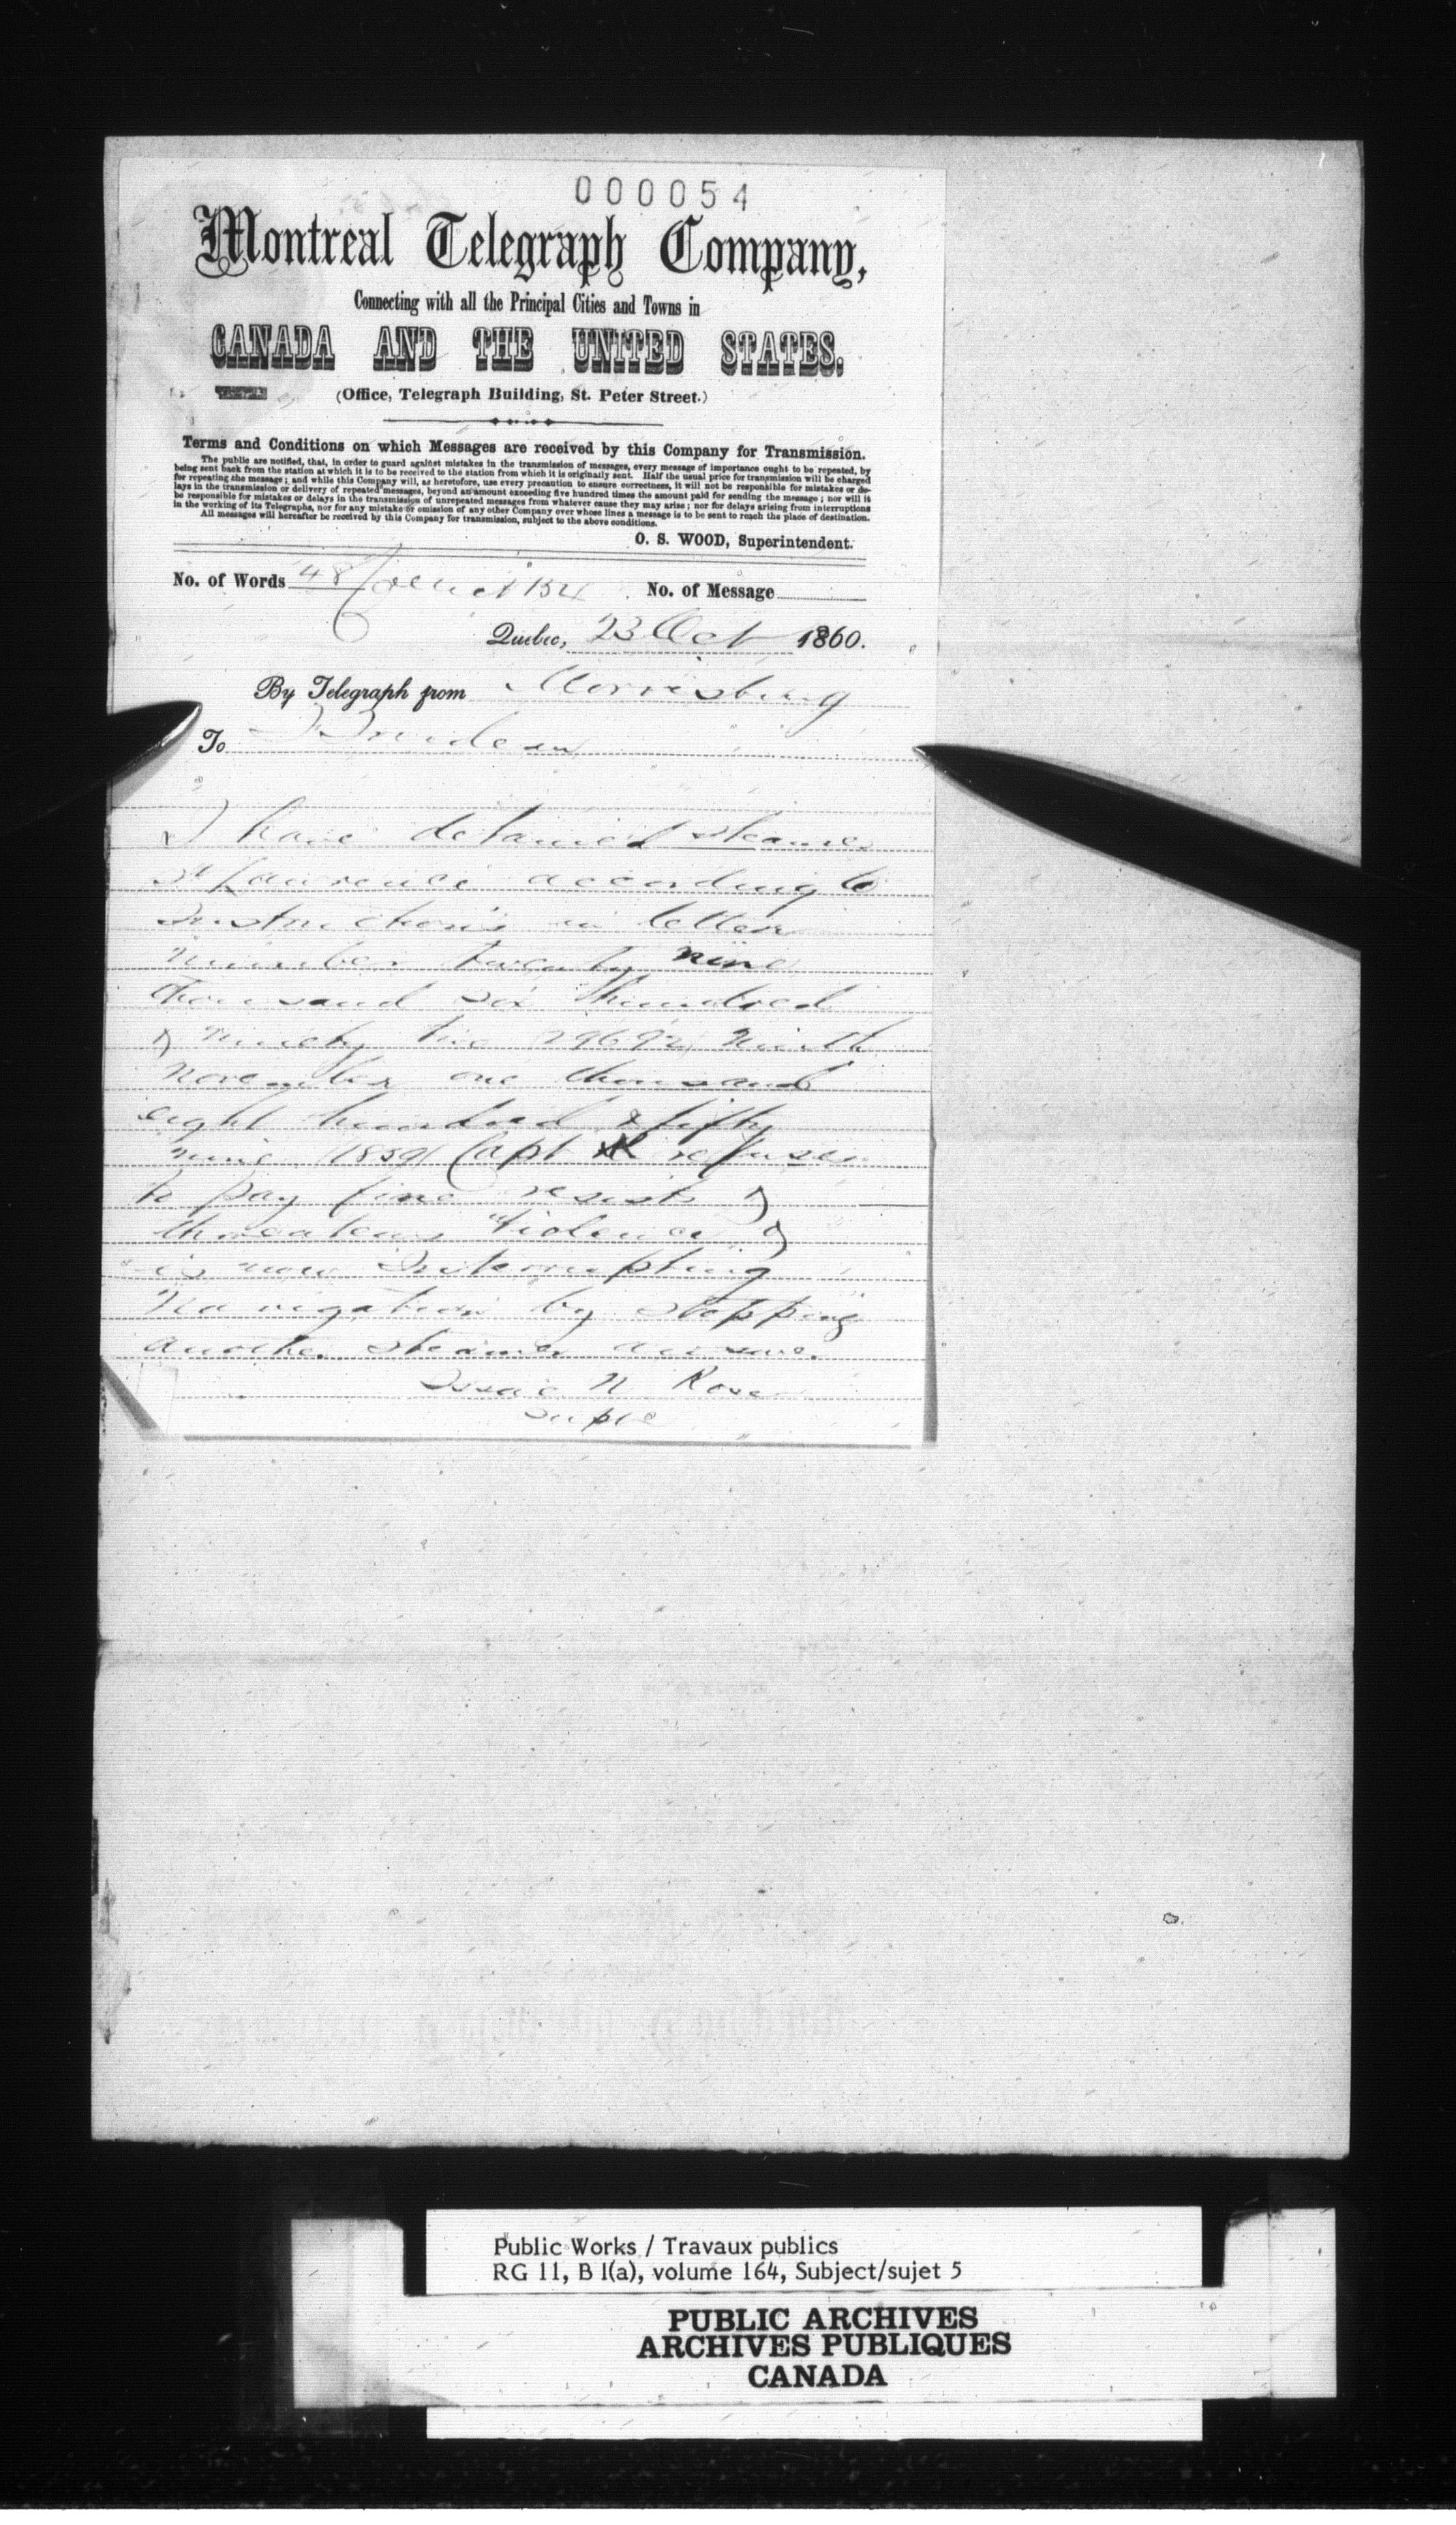 000054
Montreal Telegraph Company,
Connecting with all the Principal Cities and Towns in
CANADA AND THE UNITED STATES.
(Office, Telegraph Building, St. Peter Street.)
Terms and Conditions on which Messages are received by this Company for Transmission.
The public are notified, that, in order to guard against mistakes in the transmission of messages, every message of importance ought to be repeated, by
being sent back from the station at which it is to be received to the station from which it is originally sent. Half the usual price for transmission will be charged
for repeating the message; and while this Company will, as heretofore, use every precaution to ensure correctness, it will not be responsible for mistakes or de-
lays in the transmission or delivery of repeated messages, beyond an amount exceeding five hundred times the amount paid for sending the message; nor will it
be responsible for mistakes or delays in the transmission of unrepeated messages from whatever cause they may arise; nor for delays arising from interruptions
in the working of its Telegraphs, nor for any mistake or omission of any other Company over whose lines a message is to be sent to reach the place of destination.
All messages will hereafter be received by this Company for transmission, subject to the above conditions.
O. S. WOOD, Superintendent.
No. of Words 48 No. of Message
Quebec, 23 Oct 1860.
By Telegraph from Morrisburg
To Trudeau
I have detained steamer
St Lawrence according to
Instructions in letter
number twenty nine
thousand six hundred
& ninety two 29692 ninth
November one thousand
eight hundred & fifty
nine 1859 Capt refuses
to pay fine resists &
threatens violence &
is now Interrupting
Navigation by stopping
another steamer answer.
Isaac N Rose
Supt
Public Works / Travaux publics
RG 11, B 1(a), volume 164, Subject/sujet 5
PUBLIC ARCHIVES
ARCHIVES PUBLIQUES
CANADA